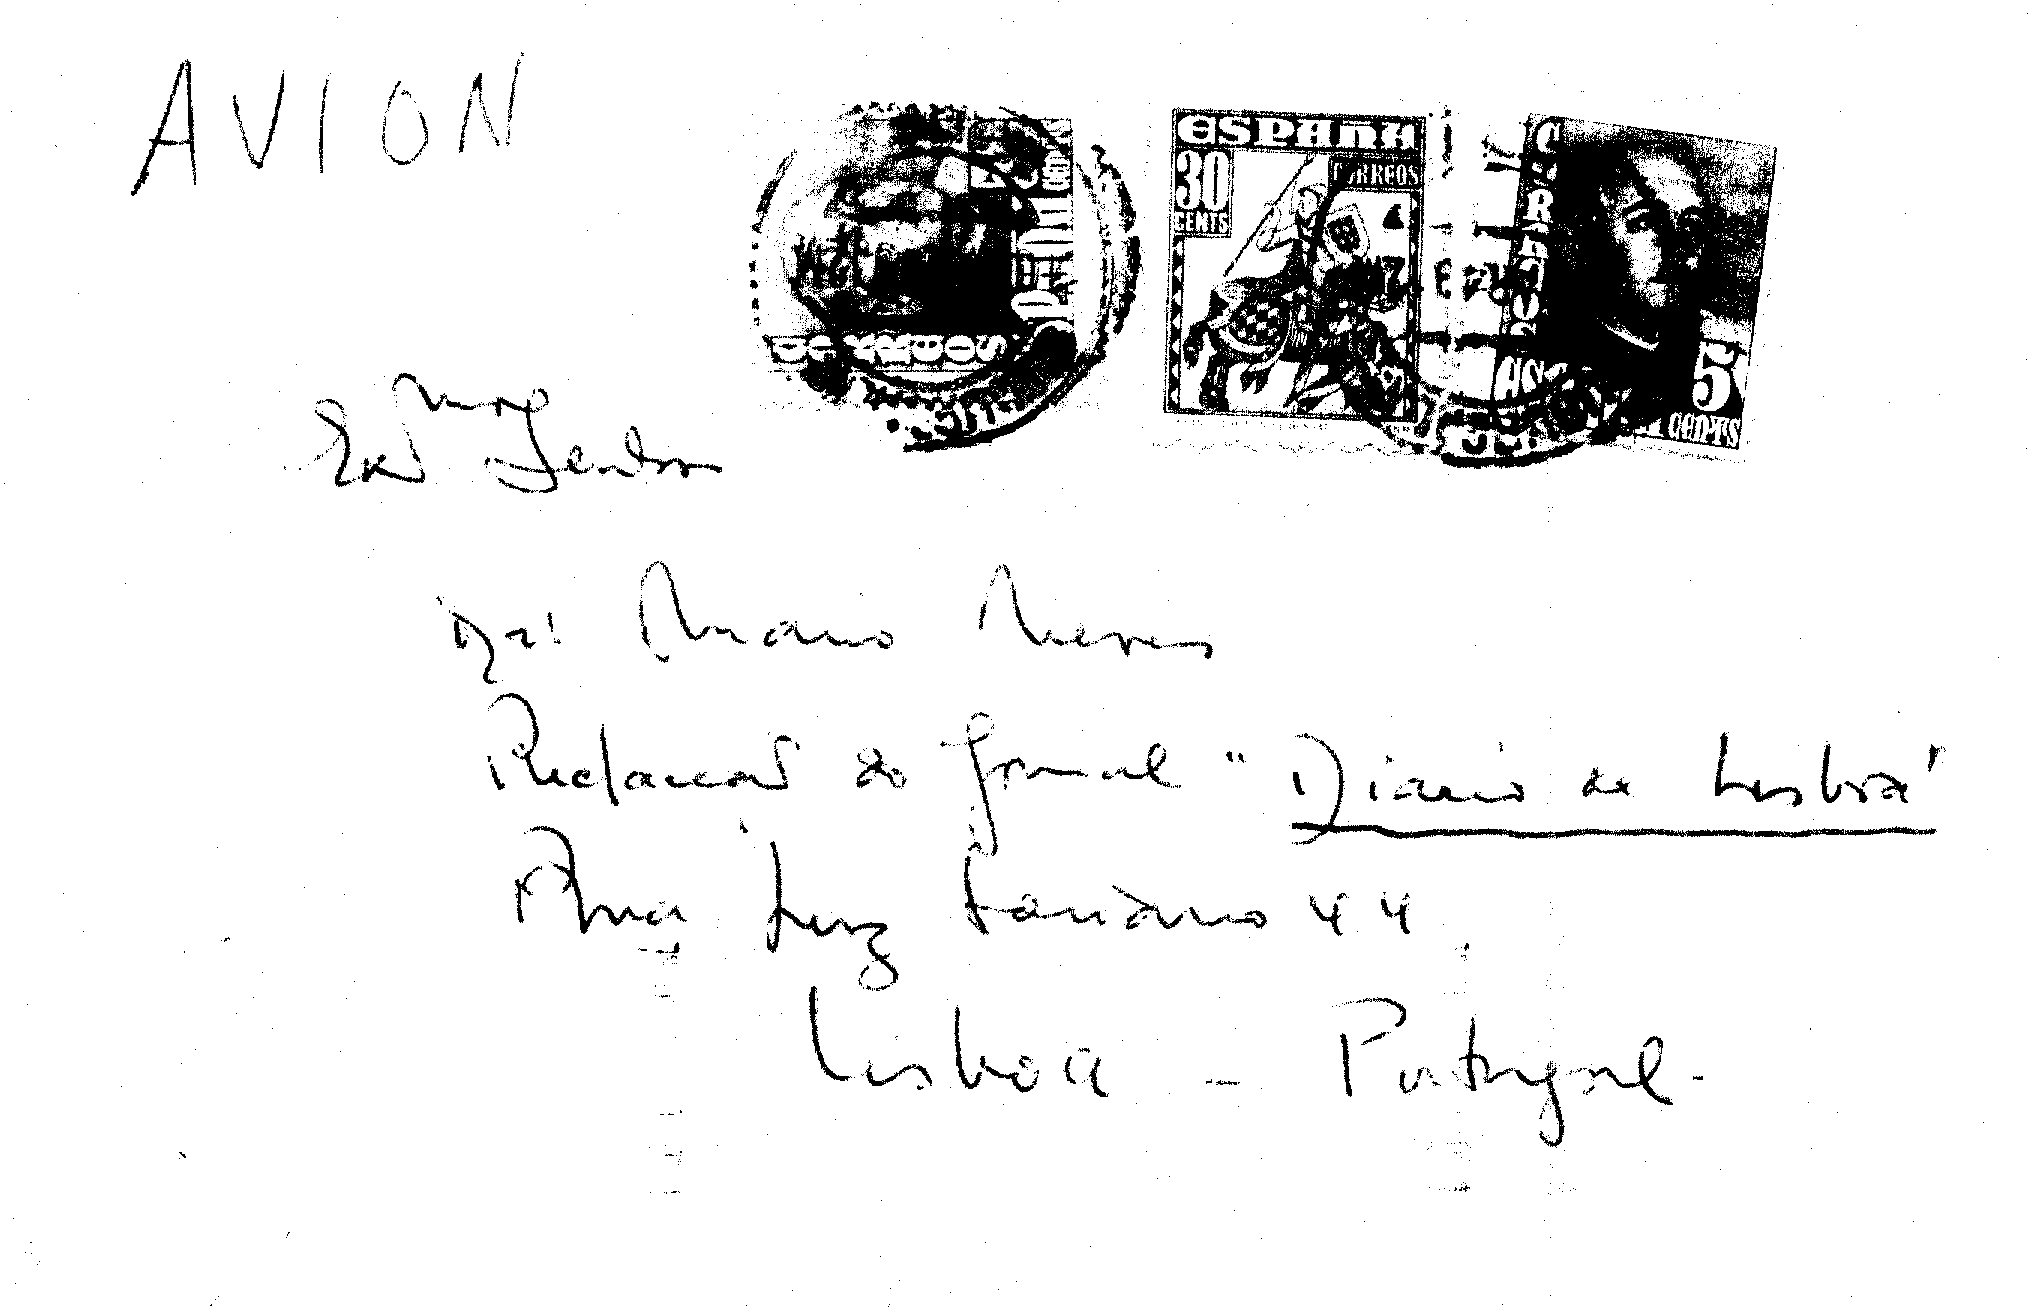 AVION
ESPAÑA
30
CENTS
CORREOS
CORREOS
CORREOS
5
CENTS
Exmo Senhor
Dr. Mario Neves
Redacção do Jornal "Diario de Lisboa"
Rua Luz Soriano 44
Lisboa - Portugal.